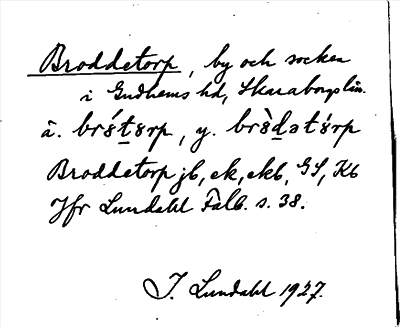 Broddetorp, by och socken
i Gudhems hd, Skaraborgs län.
ä. bró́t8rp, y. bròdət8́rp
Broddetorp jb, ek, ekb, GS, Kb
Jfr Lundahl Falb. s. 38.
I. Lundahl 1927.